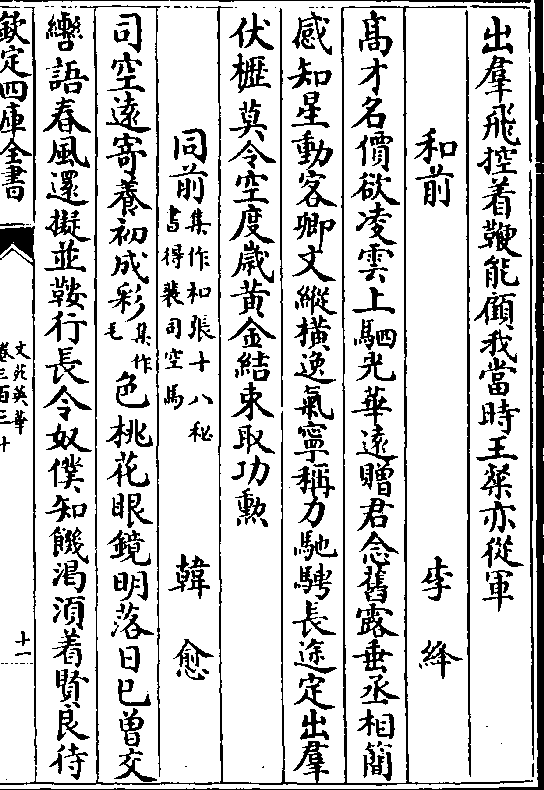 出羣飛控着鞭能顧我當時王粲亦從軍
和前 李絳
髙才名價欲凌雲上駟光華遠贈君念舊露垂丞相簡
感知星動客卿文縱橫逸氣寧稱力馳騁長途定出羣
伏櫪莫令空度歲黃金結束取功勲
同前集作和張十八秘書得裴司空馬 韓愈
司空遠寄養初成彩集作毛色桃花眼鏡明落日已曾交
轡語春風還擬並鞍行長令奴僕知饑渴湏着賢良待
欽定四庫全書
文苑英華
卷三百三十
十一